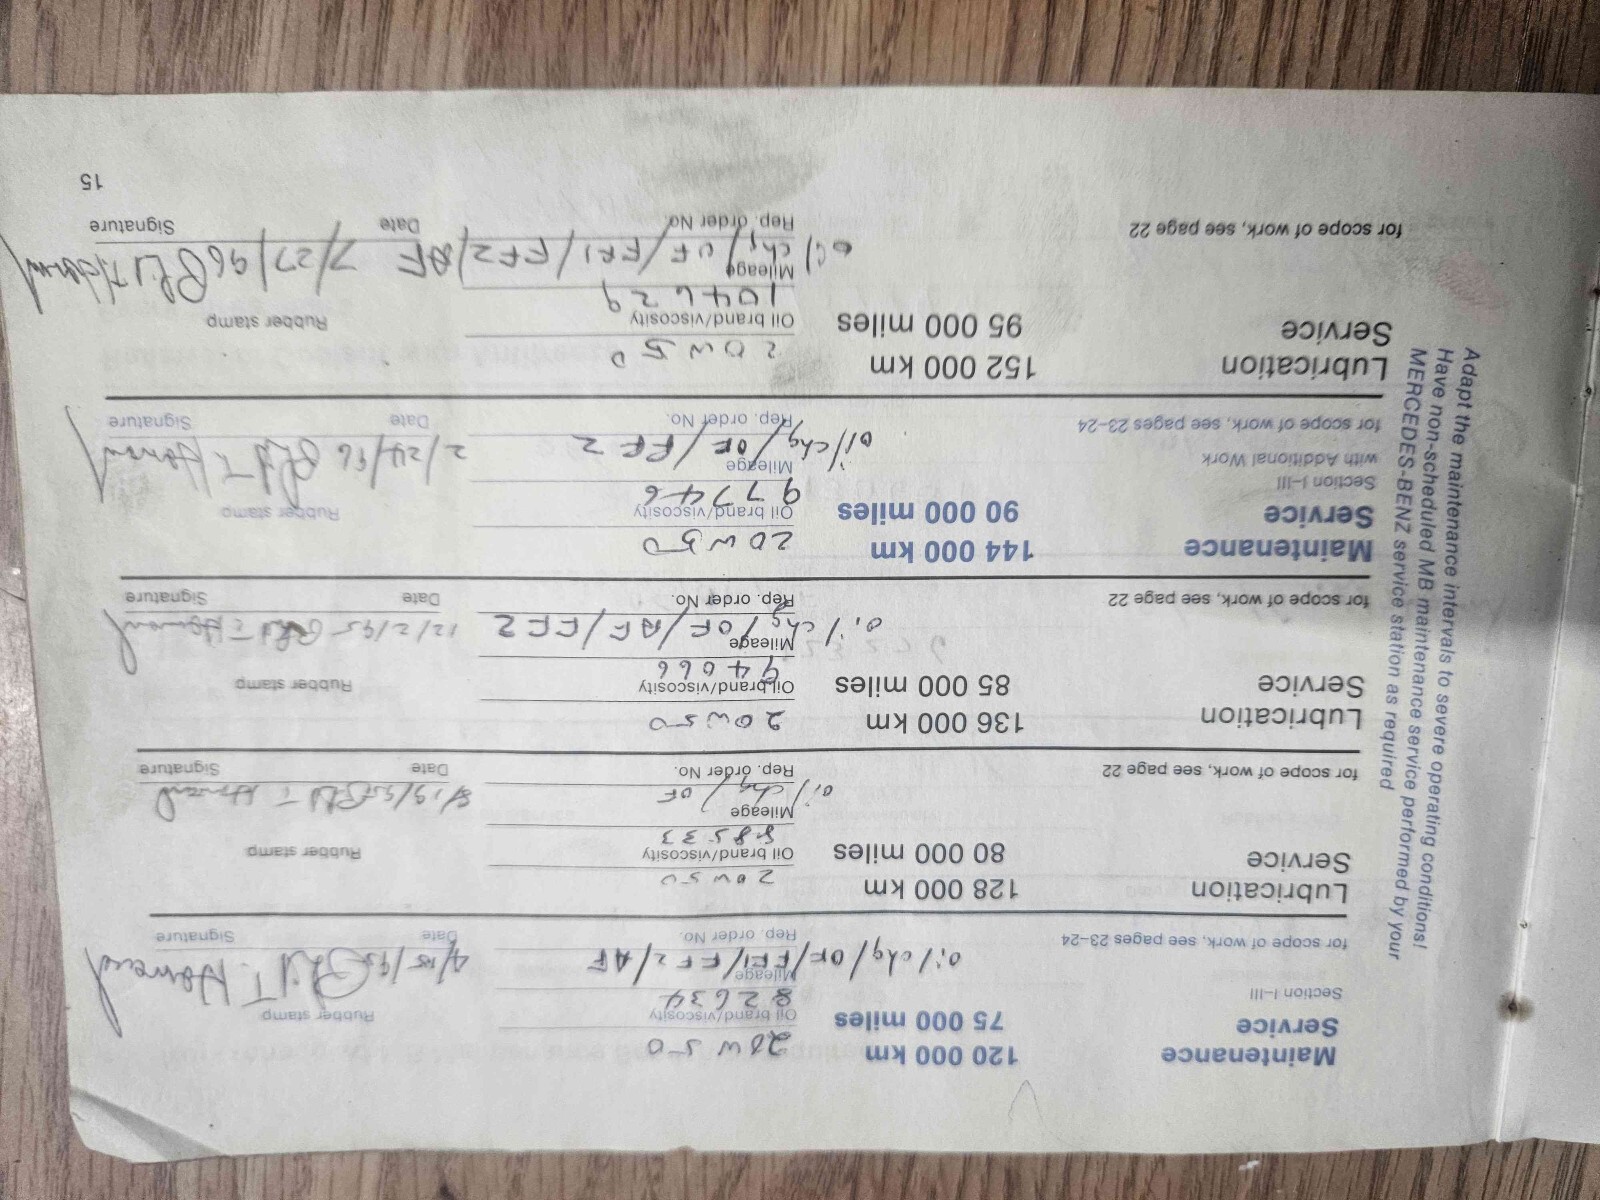 Maintenance 120 000 km 20W50
Service 75 000 miles Oil brand/viscosity Rubber stamp
82634
Section I–III Mileage
oil/chg/OF/FF1/FF2/AF 4/15/95
for scope of work, see pages 23–24 Rep. order No. Date Signature
Lubrication 128 000 km 20W50
Service 80 000 miles Oil brand/viscosity Rubber stamp
88533
Mileage
oil/chg/OF
for scope of work, see page 22 Rep. order No. Date Signature
Lubrication 136 000 km 20W50
Service 85 000 miles Oil brand/viscosity Rubber stamp
94066
Mileage
oil/chg/OF/AF/FF2 12/2/95
for scope of work, see page 22 Rep. order No. Date Signature
Maintenance 144 000 km 20W50
Service 90 000 miles Oil brand/viscosity Rubber stamp
97746
Section I–III
with Additional Work Mileage
oil/chg/OF/FF2 2/24/96
for scope of work, see pages 23–24 Rep. order No. Date Signature
Lubrication 152 000 km 20W50
Service 95 000 miles Oil brand/viscosity Rubber stamp
104629
Mileage
oil/chg/OF/FF1/FF2/AF 7/27/96
for scope of work, see page 22 Rep. order No. Date Signature
15
Adapt the maintenance intervals to severe operating conditions!
Have non-scheduled MB maintenance service performed by your
MERCEDES-BENZ service station as required